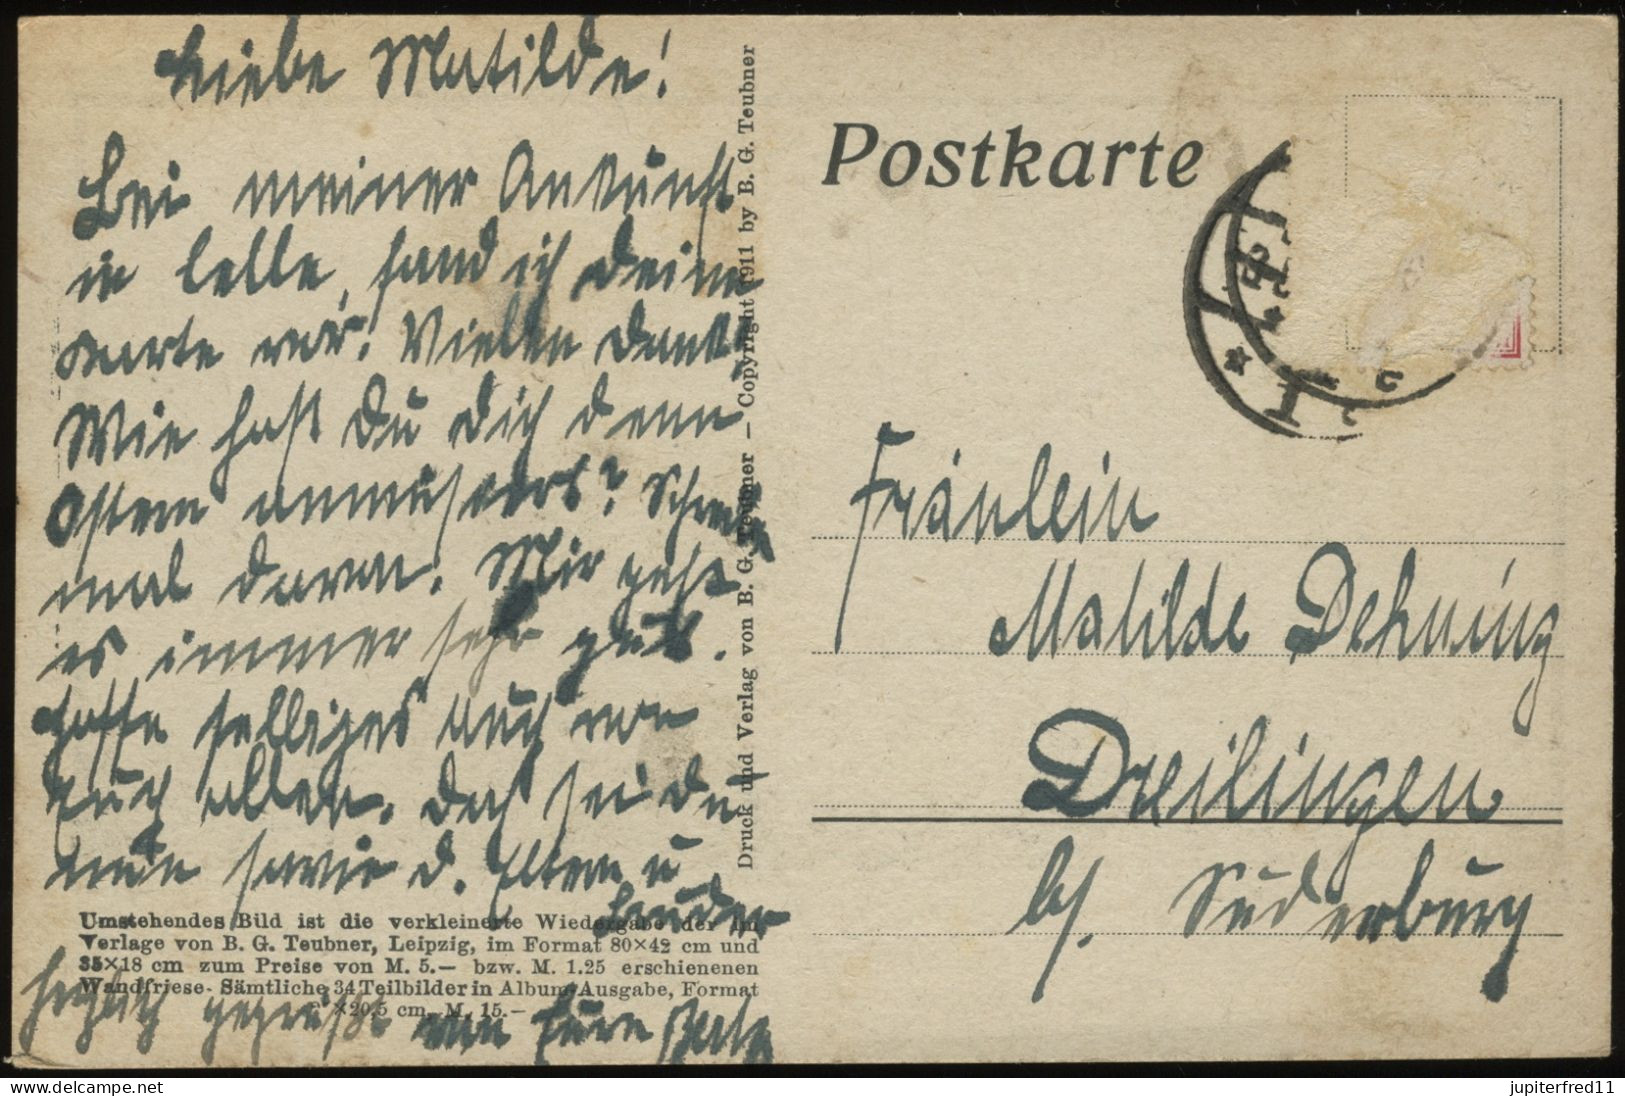 Liebe Matilde!
Bei meiner Ankunft
in Celle, fand ich deine
Karte vor. Vielen Dank!
Wie hast Du Dich denn
Ostern amüsiert? Schreibe
mal davon. Mir geht
es immer sehr gut.
Hoffe selbiges auch von
Euch allen. Doch sei du
nun sowie d. Eltern u
herzlich gegrüßt von Eurer
Druck und Verlag von B. G. Teubner — Copyright 1911 by B. G. Teubner
Umstehendes Bild ist die verkleinerte Wiedergabe der im
Verlage von B. G. Teubner, Leipzig, im Format 80×42 cm und
35×18 cm zum Preise von M. 5.— bzw. M. 1.25 erschienenen
Wandfriese. Sämtliche 34 Teilbilder in Album-Ausgabe, Format
×20,5 cm, M. 15.—
Postkarte
Fräulein
Matilde Dehning
Dreilingen
b/. Suderburg
jupiterfred11